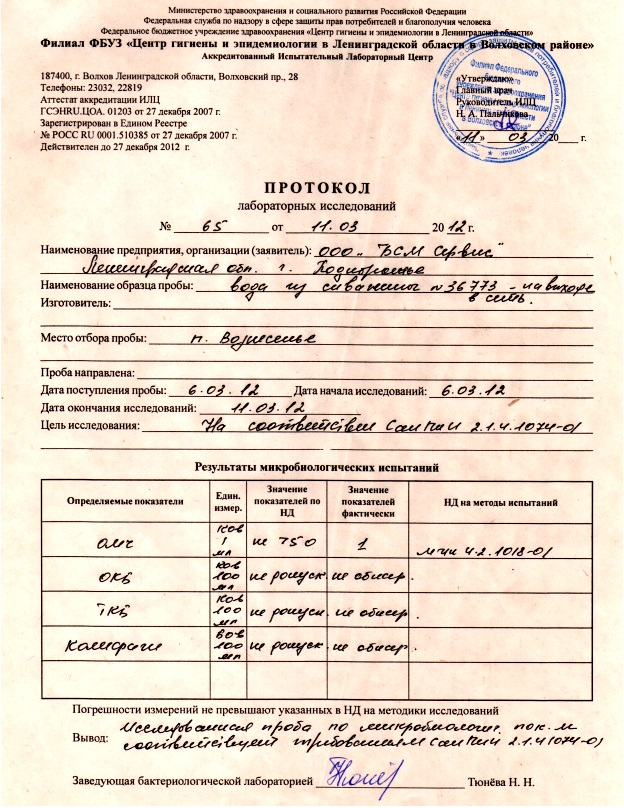 Министерство здравоохранения и социального развития Российской Федерации
Федеральная служба по надзору в сфере защиты прав потребителей и благополучия человека
Федеральное бюджетное учреждение здравоохранения «Центр гигиены и эпидемиологии в Ленинградской области»
Филиал ФБУЗ «Центр гигиены и эпидемиологии в Ленинградской области в Волховском районе»
Аккредитованный Испытательный Лабораторный Центр
187400, г. Волхов Ленинградской области, Волховский пр., 28
Телефоны: 23032, 22819
Аттестат аккредитации ИЛЦ
ГСЭНRU.ЦОА. 01203 от 27 декабря 2007 г.
Зарегистрирован в Едином Реестре
№ РОСС RU 0001.510385 от 27 декабря 2007 г.
Действителен до 27 декабря 2012 г.
«Утверждаю»
Главный врач
Руководитель ИЛЦ
Н. А. Пальчикова
«11» 03 20 г.
ПРОТОКОЛ
лабораторных исследований
№ 65 от 11.03 2012 г.
Наименование предприятия, организации (заявитель): ООО „БСМ Сервис"
Ленинградская обл. г. Подпорожье
Наименование образца пробы: вода из скважины №36773 - на выходе
в сеть.
Изготовитель:
Место отбора пробы: п. Вознесенье
Проба направлена:
Дата поступления пробы: 6.03.12 Дата начала исследований: 6.03.12
Дата окончания исследований: 11.03.12
Цель исследования: На соответствие СанПиН 2.1.4.1074-01
Результаты микробиологических испытаний
Определяемые показатели Един. измер. Значение показателей по НД Значение показателей фактически НД на методы испытаний
ОМЧ КОЕ 1 мл не >50 1 МУК 4.2.1018-01
ОКБ КОЕ 100 мл не допуск. не обнар.
ТКБ КОЕ 100 мл не допуск. не обнар.
Колифаги БОЕ 100 мл не допуск. не обнар.
Погрешности измерений не превышают указанных в НД на методики исследований
Вывод: Исследованная проба по микробиологич. пок-м
соответствует требованиям СанПиН 2.1.4.1074-01
Заведующая бактериологической лабораторией Тюнёва Н. Н.